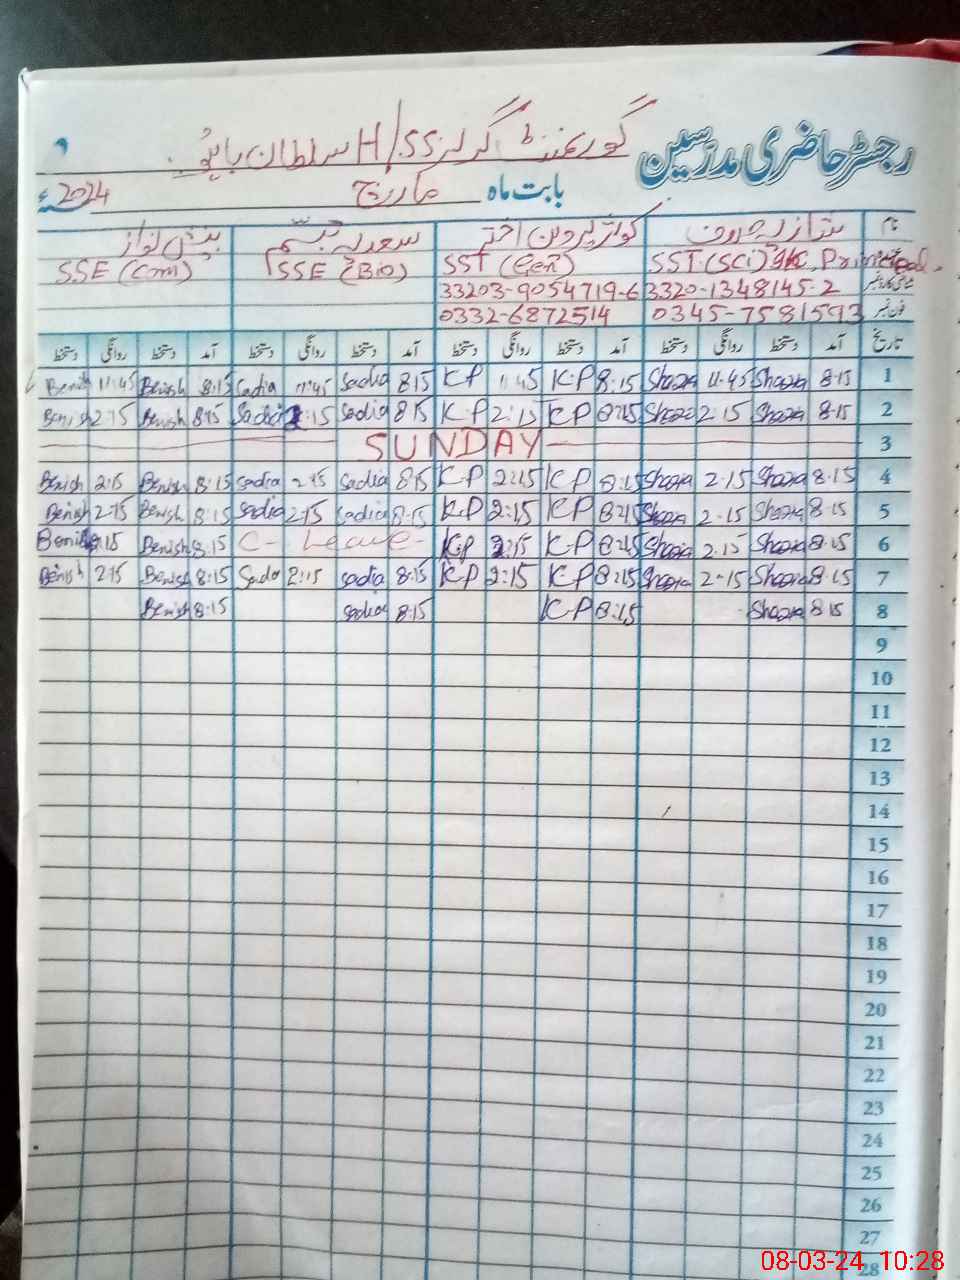 رجسٹر حاضری مدرسین گورنمنٹ گرلز H/SS سلطان باہو
بابت ماہ مارچ 2024ء
نام شازیہ کوثر پروین اختر سعدیہ تبسم بینش نواز
SST (Sci) I/C Principal. SST (Gen) SSE (Bio) SSE (Com)
3320-1348145-2 33203-9054719-6
فون نمبر 0345-7581593 0332-6872514
تاریخ آمد دستخط روانگی دستخط آمد دستخط روانگی دستخط آمد دستخط روانگی دستخط آمد دستخط روانگی دستخط
1 8:15 Shazia 11:45 Shazia 8:15 K.P 11:45 K.P 8:15 Sadia 11:45 Sadia 8:15 Benish 11:45 Benish
2 8:15 Shazia 2:15 Shazia 8:15 K.P 2:15 K.P 8:15 Sadia 2:15 Sadia 8:15 Benish 2:15 Benish
3 SUNDAY
4 8:15 Shazia 2:15 Shazia 8:15 K.P 2:15 K.P 8:15 Sadia 2:15 Sadia 8:15 Benish 2:15 Benish
5 8:15 Shazia 2:15 Shazia 8:15 K.P 2:15 K.P 8:15 Sadia 2:15 Sadia 8:15 Benish 2:15 Benish
6 8:15 Shazia 2:15 Shazia 8:15 K.P 2:15 K.P C- Leave- 8:15 Benish 2:15 Benish
7 8:15 Shazia 2:15 Shazia 8:15 K.P 2:15 K.P 8:15 Sadia 2:15 Sadia 8:15 Benish 2:15 Benish
8 8:15 Shazia 8:15 K.P 8:15 Sadia 8:15 Benish
9
10
11
12
13
14
15
16
17
18
19
20
21
22
23
24
25
26
27
28
08-03-24, 10:28